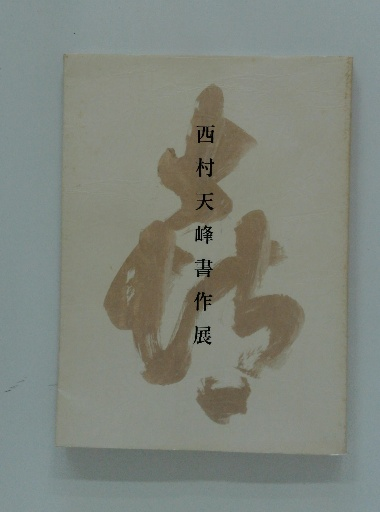 西村天峰書作展